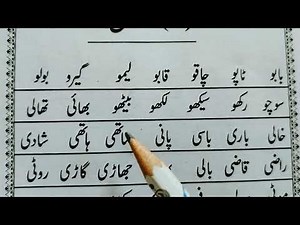 بابو ٹاپو چاقو قابو لیمو گیرو بولو
سوچو رکھو سیکھو لکھو بیٹھو بھائی تھالی
خالی باری باسی پانی ہاتھی شادی
راضی قاضی بالی جھاڑی گاڑی روٹی